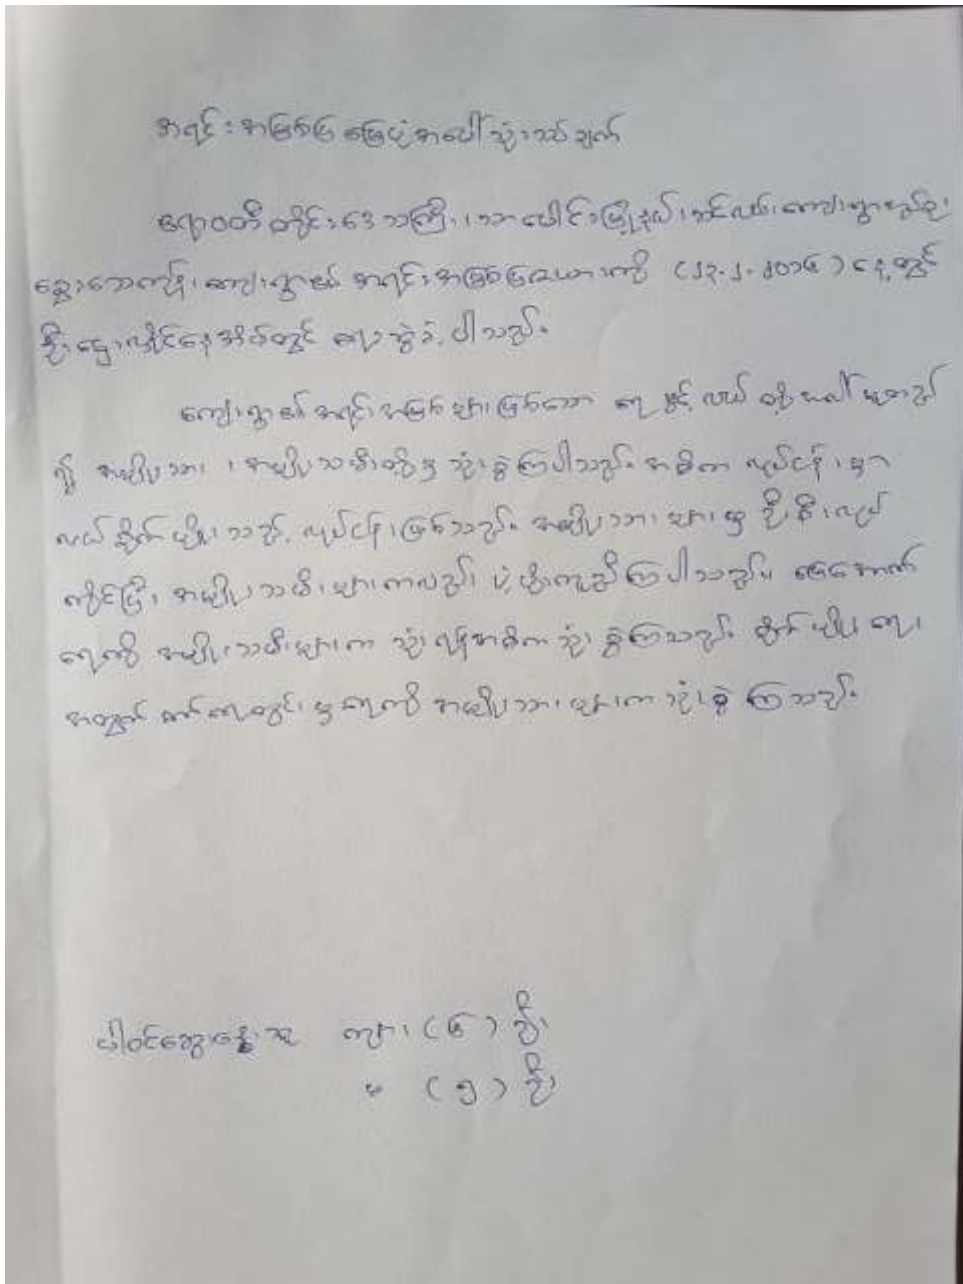 အရင်းအမြစ်ပြ မြေပုံအပေါ် သုံးသပ်ချက်
ဧရာဝတီတိုင်းဒေသကြီး၊ သာပေါင်းမြို့နယ်၊ ကျေးရွာအုပ်စု၊
ကျေးရွာ၏ အရင်းအမြစ်ပြဇယားကို (၂၃.၂.၂၀၁၆) နေ့တွင်
ဦး နေအိမ်တွင် ရေးဆွဲခဲ့ပါသည်။
ကျေးရွာ၏ အရင်းအမြစ်များဖြစ်သော ရေနှင့် လယ် တို့အပေါ် မူတည်
၍ အမျိုးသား၊ အမျိုးသမီးတို့မှ သုံးစွဲကြပါသည်။ အဓိက လုပ်ငန်းမှာ
လယ်စိုက်ပျိုးသည့် လုပ်ငန်းဖြစ်သည်။ အမျိုးသားများမှ ဦးစီးလုပ်
ကိုင်ပြီး အမျိုးသမီးများကလည်း ပံ့ပိုးကူညီကြပါသည်။ မြေအောက်
ရေကို အမျိုးသမီးများက သုံးရန်အဓိက သုံးစွဲကြသည်။ စိုက်ပျိုးရေး
အတွက် စက်ရေတွင်းမှရေကို အမျိုးသားများက သုံးစွဲကြသည်။
ပါဝင်ဆွေးနွေးသူ ကျား (၆) ဦး
မ (၅) ဦး